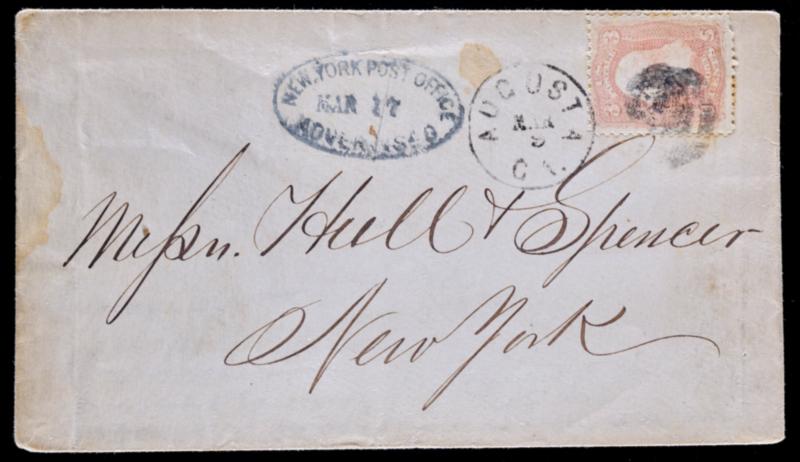 NEW YORK POST OFFICE
MAR 17
ADVERTISED
AUGUSTA
MAR
9
GA.
3 3
Messrs. Hull & Spencer
New York